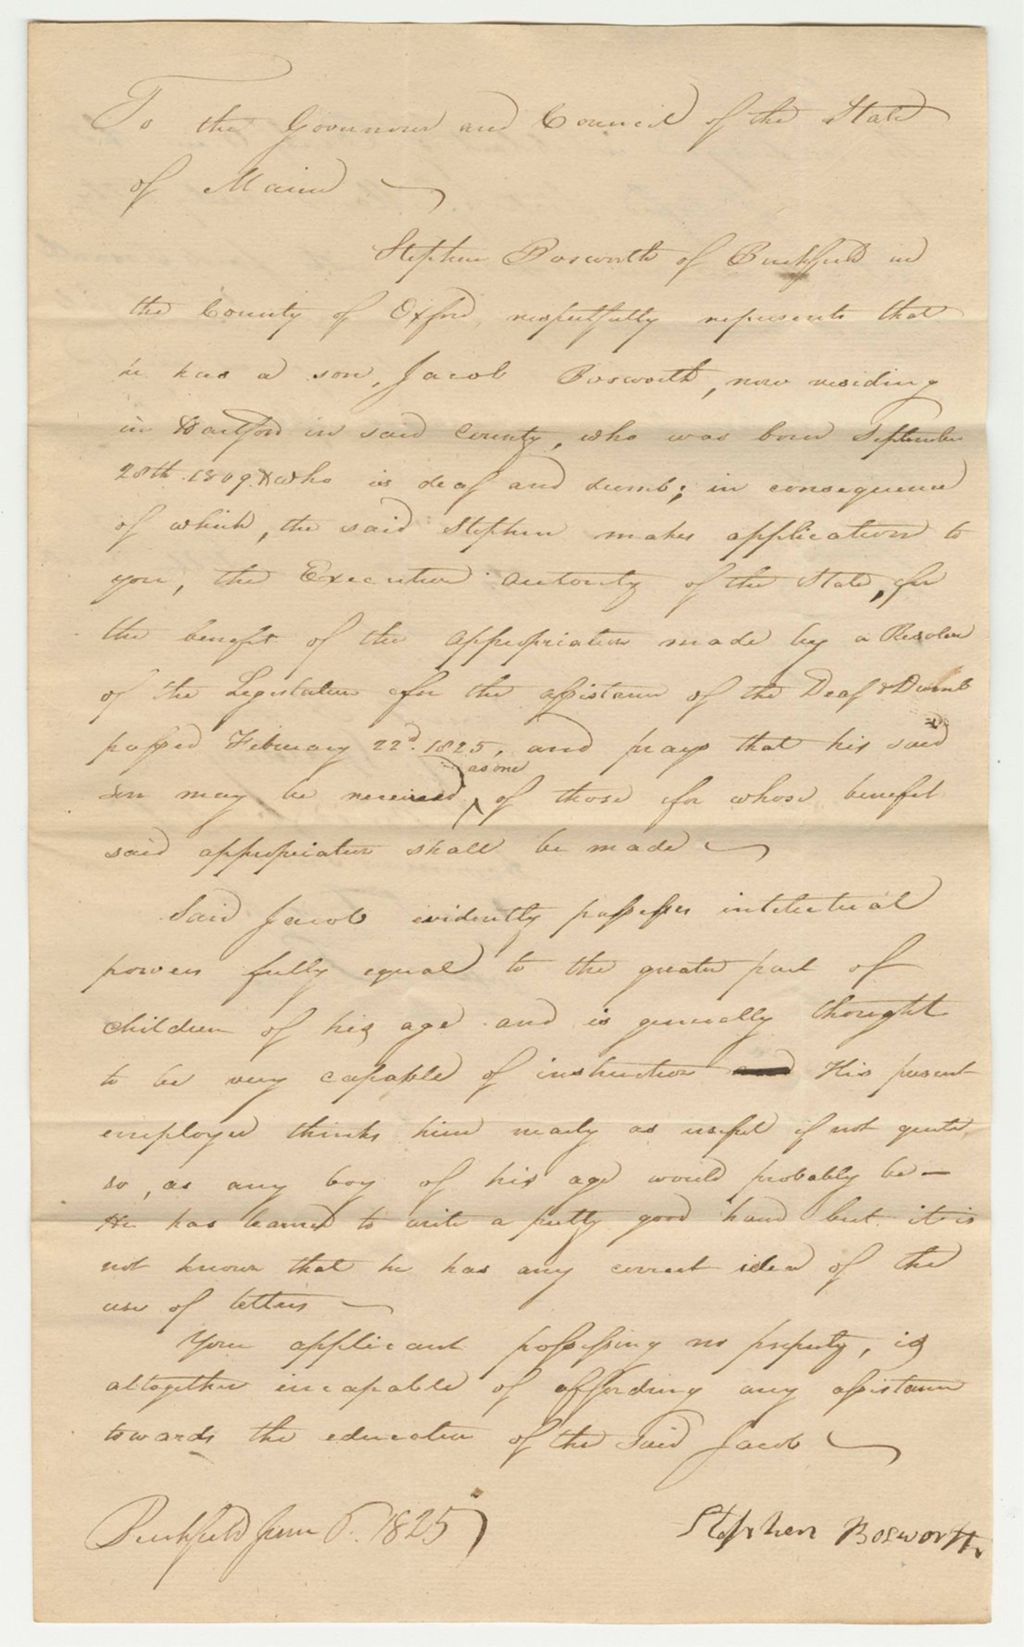 To the Governour and Council of the State
of Maine
Stephen Bosworth of Buckfield in
the County of Oxford, respectfully represents that
he has a son, Jacob Bosworth, now residing
in Hartford in said County, who was born September
28th. 1809 & who is deaf and dumb; in consequence
of which, the said Stephen makes application to
you, the Executive autority of the State, for
the benefit of the appropriation made by a Resolve
of the Legislature for the assistance of the Deaf & Dumb
passed February 22d. 1825, and prays that his said
as one
son may be received ^ of those for whose benefit
said appropriation shall be made
Said Jacob evidently possesses intellectual
powers fully equal to the greater part of
children of his age and is generally thought
to be very capable of instruction His present
employer thinks him nearly as useful if not quite
so, as any boy of his age would probably be —
He has learned to write a pretty good hand but it is
not known that he has any correct idea of the
use of letters —
Your applicant possessing no property, is
altogether incapable of affording any assistance
towards the education of the said Jacob
Buckfield June 6. 1825
Stephen Bosworth